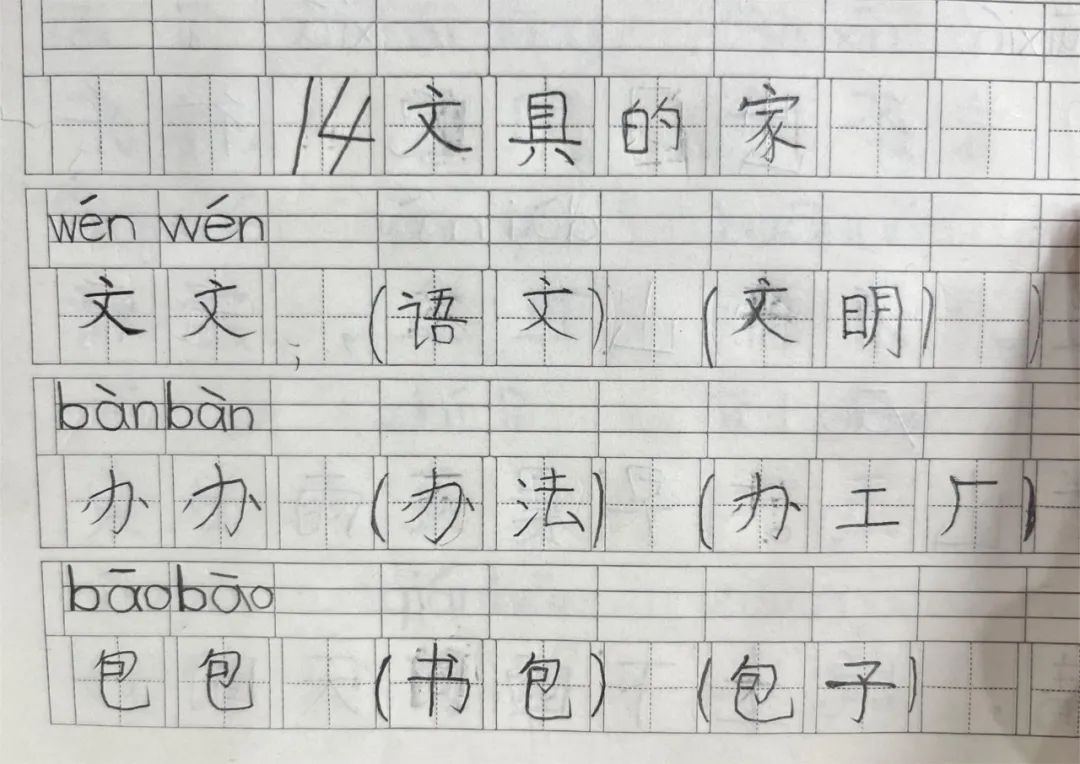 14文具的家
wén wén
文文；(语文) (文明)
bàn bàn
办办 (办法) (办工厂)
bāo bāo
包包 (书包) (包子)